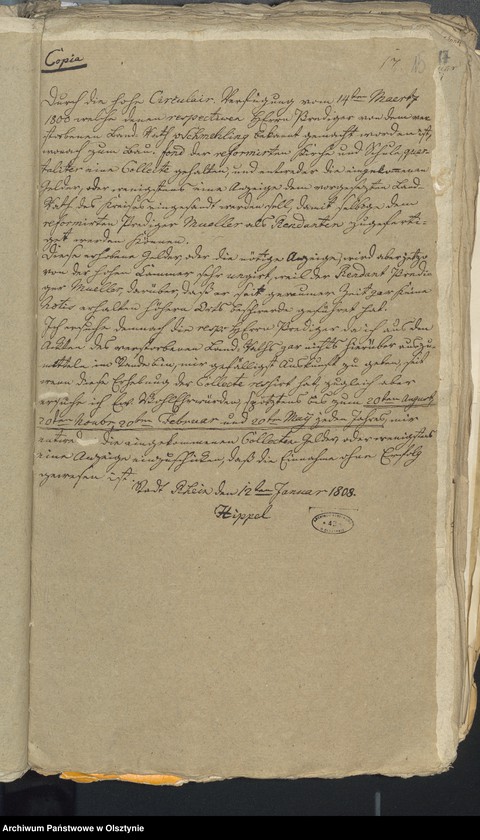 Copia
17
Durch die hohe Circulair Verfügung vom 14ten Maertz
1800 welche denen respectiven Herrn Prediger von dem ver-
storbenen Land Rath v Schmehling bekant gemacht worden ist,
wonach zum Bau-fond der reformirten Kirche und Schule, quar-
taliter eine Collecte gehalten, und entweder die eingekommenen
Gelder, oder wenigstens eine Anzeige dem vorgesezten Land-
Rath des Kreises eingesandt werden soll, damit selbige dem
reformirten Prediger Mueller als Rendanten zugeferti-
get werden können.
Diese erhobene Gelder, oder die nötige Anzeige, wird aber jetzo
von der hohen Cammer sehr urgirt, weil der Rendant Predi-
ger Mueller, darüber, daß er seit geraumer Zeit gar keine
Notiz erhalten höhern Orts Beschwerde geführet hat.
Ich ersuche demnach die resp: Herrn Prediger da ich aus den
Akten des verstorbenen Land Raths gar nichts hierüber auszu-
mitteln im Stande bin, mir gefälligst Auskunft zu geben, seit
wenn diese Erhebung der Collecte cessirt hat, zugleich aber
ersuche ich Ew: Wohlehrwürden, spätestens bis zum 20ten August
20ten Novbr 20ten Februar und 20ten May jeden Jahres, mir
die eingekommenen Collecten Gelder, oder wenigstens
eine Anzeige einzuschicken, daß die Einnahme ohne Erfolg
gewesen ist.
Stadt Rhein den 12ten Januar 1808.
Hippel
Archiwum Państwowe w Olsztynie